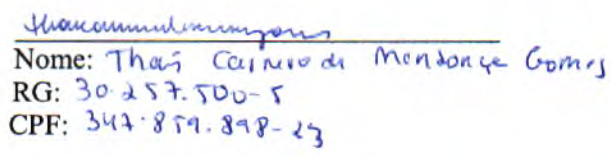 Nome: Thaís Carneiro de Mendonça Gomes
RG: 30.257.500-5
CPF: 347.859.898-23